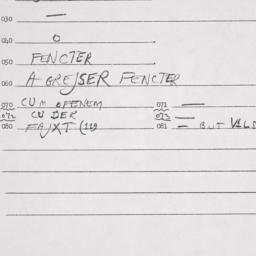 030 —
040 O
050 FENCTER
060 A GREJSER FENCTER
070 CUM OFENEM 071 —
072 CU DER 073 —
080 FAJXT (119 081 — BUT VALD